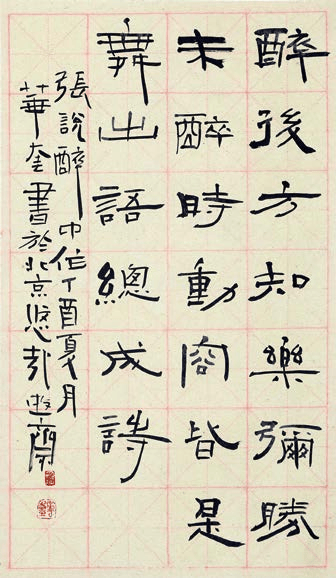 醉後方知樂彌勝
未醉時動容皆是
舞出語總成詩
張說醉中作丁酉夏月
華奎書於北京悠哉遊齋